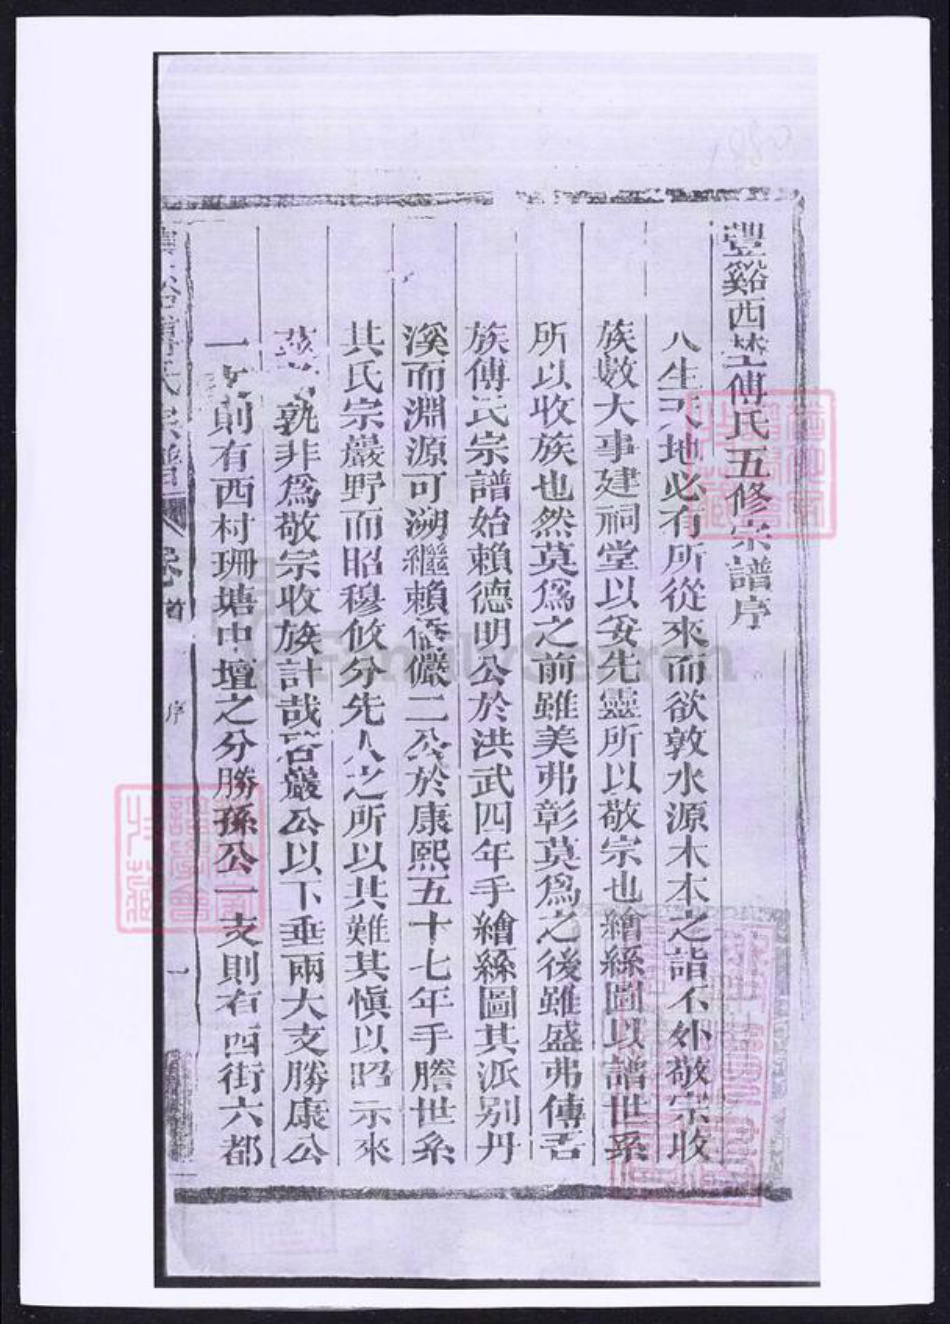 豐谿西塋傅氏五修宗譜序
人生天地必有所從來而欲敦水源木本之誼不外敬宗收
族數大事建祠堂以妥先靈所以敬宗也繪絲圖以譜世系
所以收族也然莫爲之前雖美弗彰莫爲之後雖盛弗傳吾
族傅氏宗譜始賴德明公於洪武四年手繪絲圖其派别丹
溪而淵源可溯繼賴儒儼二公於康熙五十七年手謄世系
共氏宗巖野而昭穆攸分先人之所以共難其愼以昭示來
孰非爲敬宗收族計哉吾巖公以下垂兩大支勝康公
一支則有西村珊塘中壇之分勝孫公一支則有西街六都
傅氏宗譜 卷首 序 一
FamilySearch